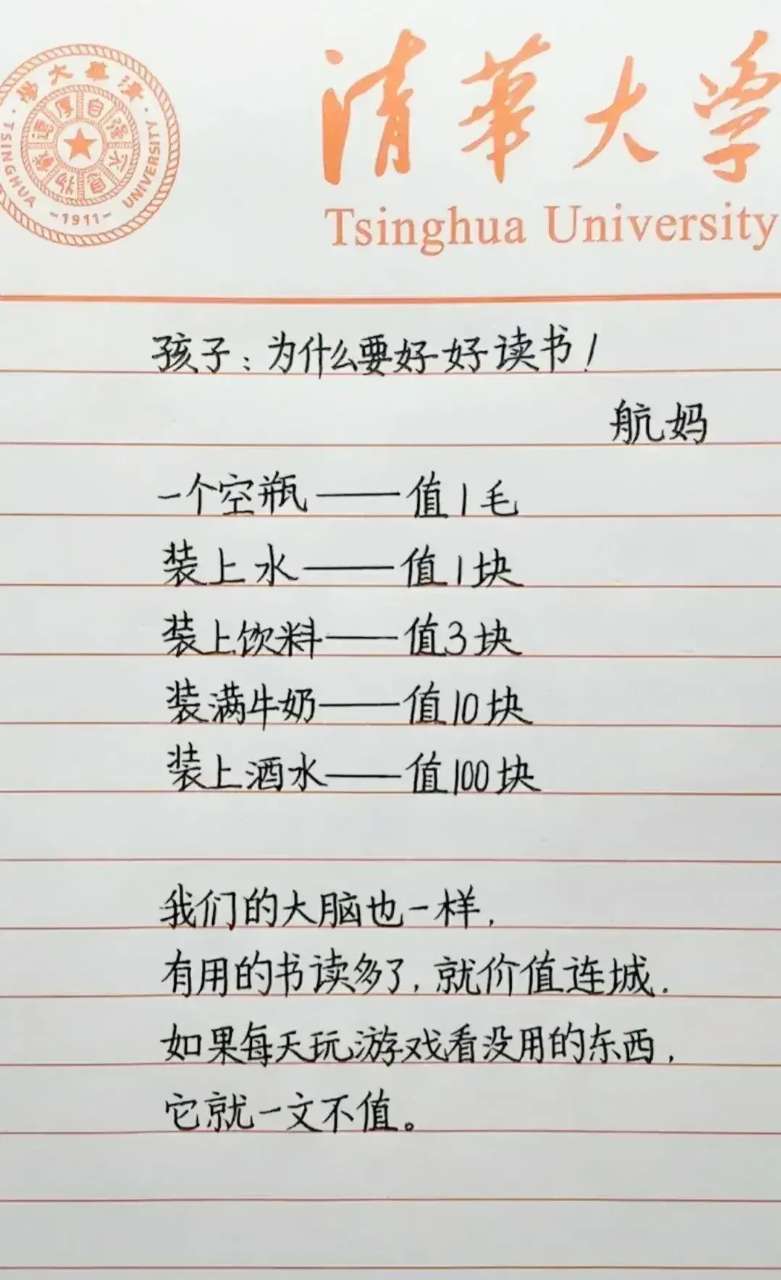 清華大学
Tsinghua University
清華大學
TSINGHUA UNIVERSITY
自强不息
厚德載物
-1911-
孩子：为什么要好好读书！
航妈
一个空瓶——值1毛
装上水——值1块
装上饮料——值3块
装满牛奶——值10块
装上酒水——值100块
我们的大脑也一样，
有用的书读多了，就价值连城．
如果每天玩游戏看没用的东西，
它就一文不值。